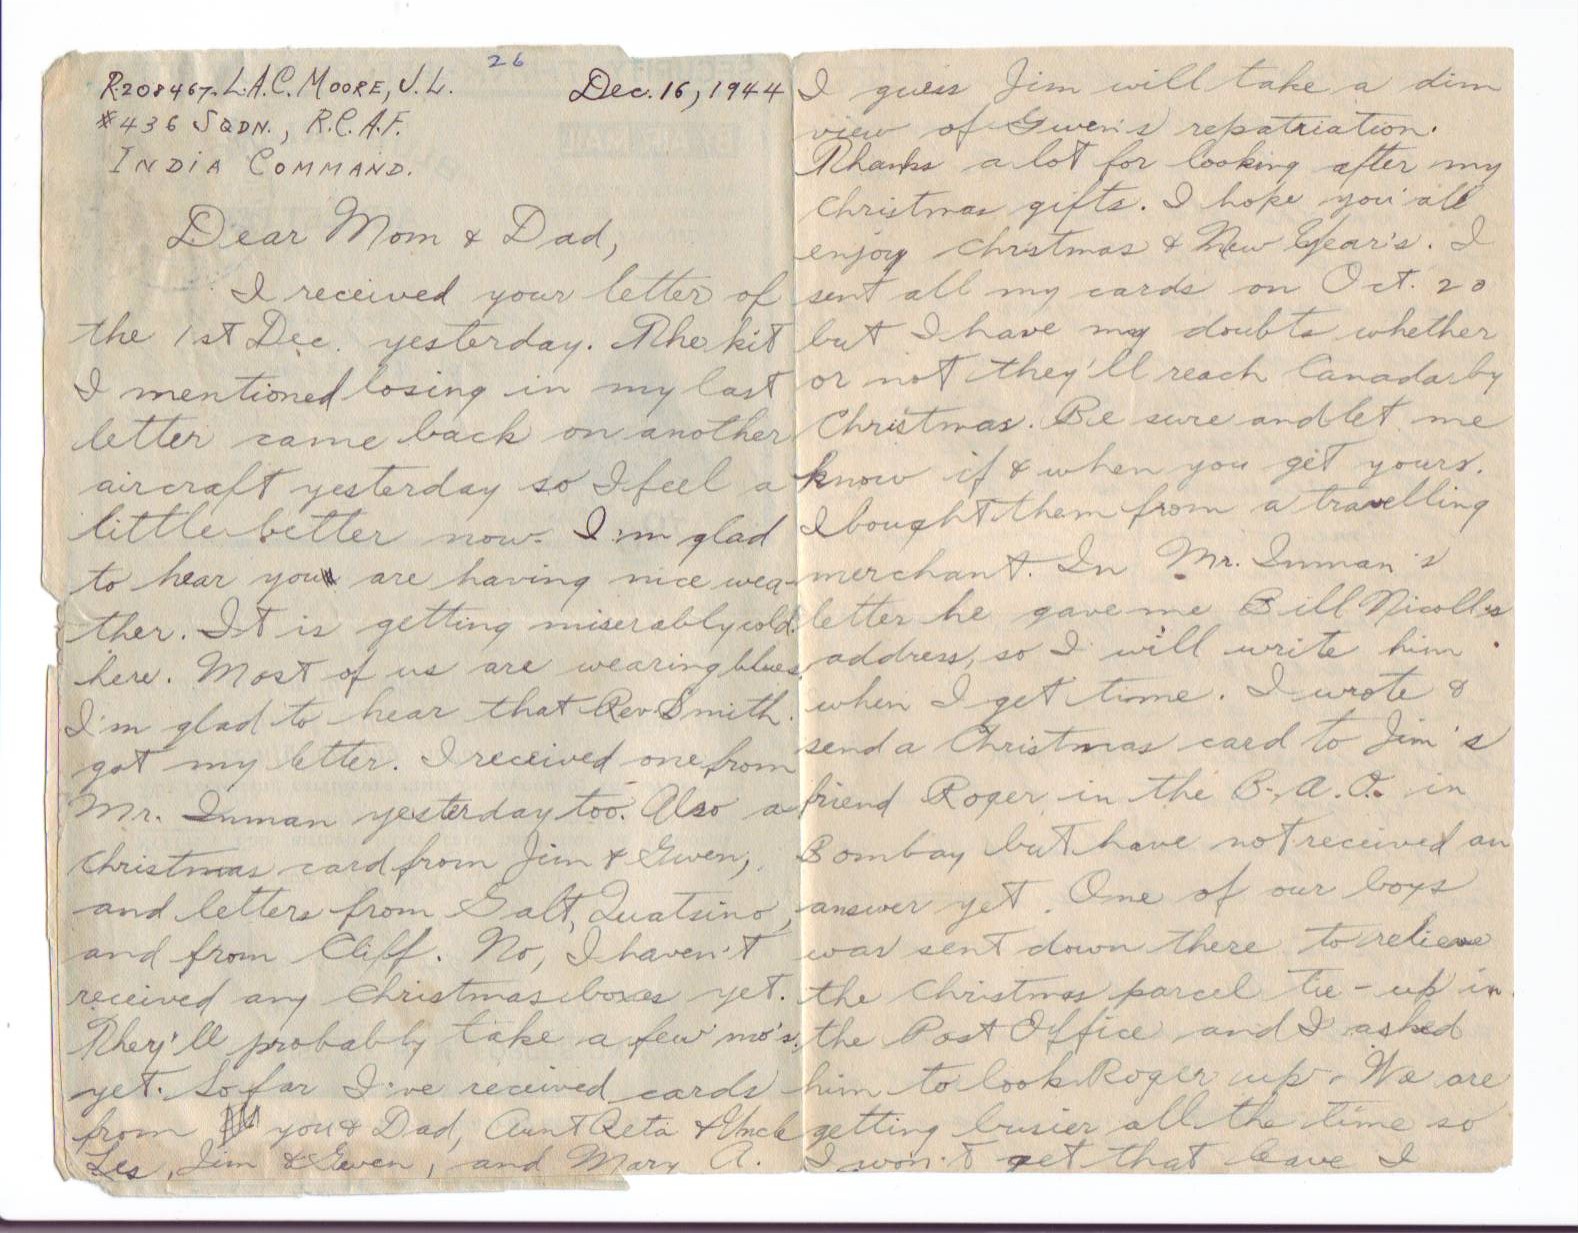 26
R208467. L.A.C. MOORE, J. L. Dec. 16, 1944
#436 SQDN., R.C.A.F.
INDIA COMMAND.
Dear Mom & Dad,
I received your letter of
the 1st Dec. yesterday. The kit
I mentioned losing in my last
letter came back on another
aircraft yesterday so I feel a
little better now. I'm glad
to hear you are having nice wea-
ther. It is getting miserably cold
here. Most of us are wearing blues.
I'm glad to hear that Rev. Smith
got my letter. I received one from
Mr. Inman yesterday too. Also a
Christmas card from Jim & Gwen,
and letters from Galt, Quatsino,
and from Cliff. No, I haven't
received any Christmas boxes yet.
They'll probably take a few mo's,
yet. So far I've received cards
from you & Dad, Aunt Reta & Uncle
Les, Jim & Gwen, and Mary A.
I guess Jim will take a dim
view of Gwen's repatriation.
Thanks a lot for looking after my
Christmas gifts. I hope you all
enjoy Christmas & New Year's. I
sent all my cards on Oct. 20
but I have my doubts whether
or not they'll reach Canada by
Christmas. Be sure and let me
know if & when you get yours.
I bought them from a travelling
merchant. In Mr. Inman's
letter he gave me Bill Nicolls
address, so I will write him
when I get time. I wrote &
send a Christmas card to Jim's
friend Roger in the B.A.O. in
Bombay but have not received an
answer yet. One of our boys
was sent down there to relieve
the Christmas parcel tie-up in
the Post Office and I asked
him to look Roger up. We are
getting busier all the time so
I won't get that leave I